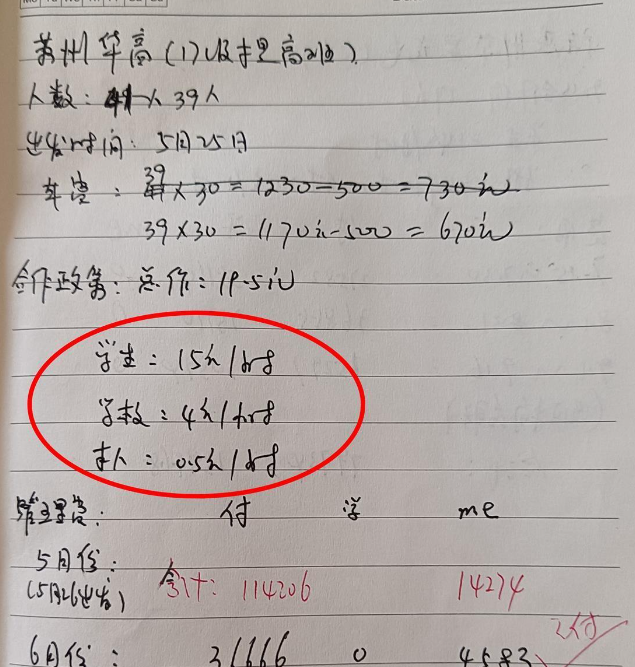 苏州华高(17级挂高2组)
人数: 41人 39人
出发时间: 5月25日
车费: 39 41×30=1230-500=730元
39×30=1170元-500=670元
合作政策: 总价: 19.5元
学生: 15元/时
学校: 4元/时
本人: 0.5元/时
管理费: 付 学 me
5月份:
(5月26出发) 合计: 114206 14274
6月份: 31666 0 4683 已付